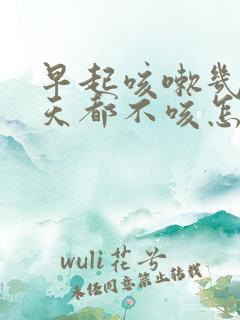 早起咳嗽几
天都不咳怎
wuli花兮
未经同意禁止转载